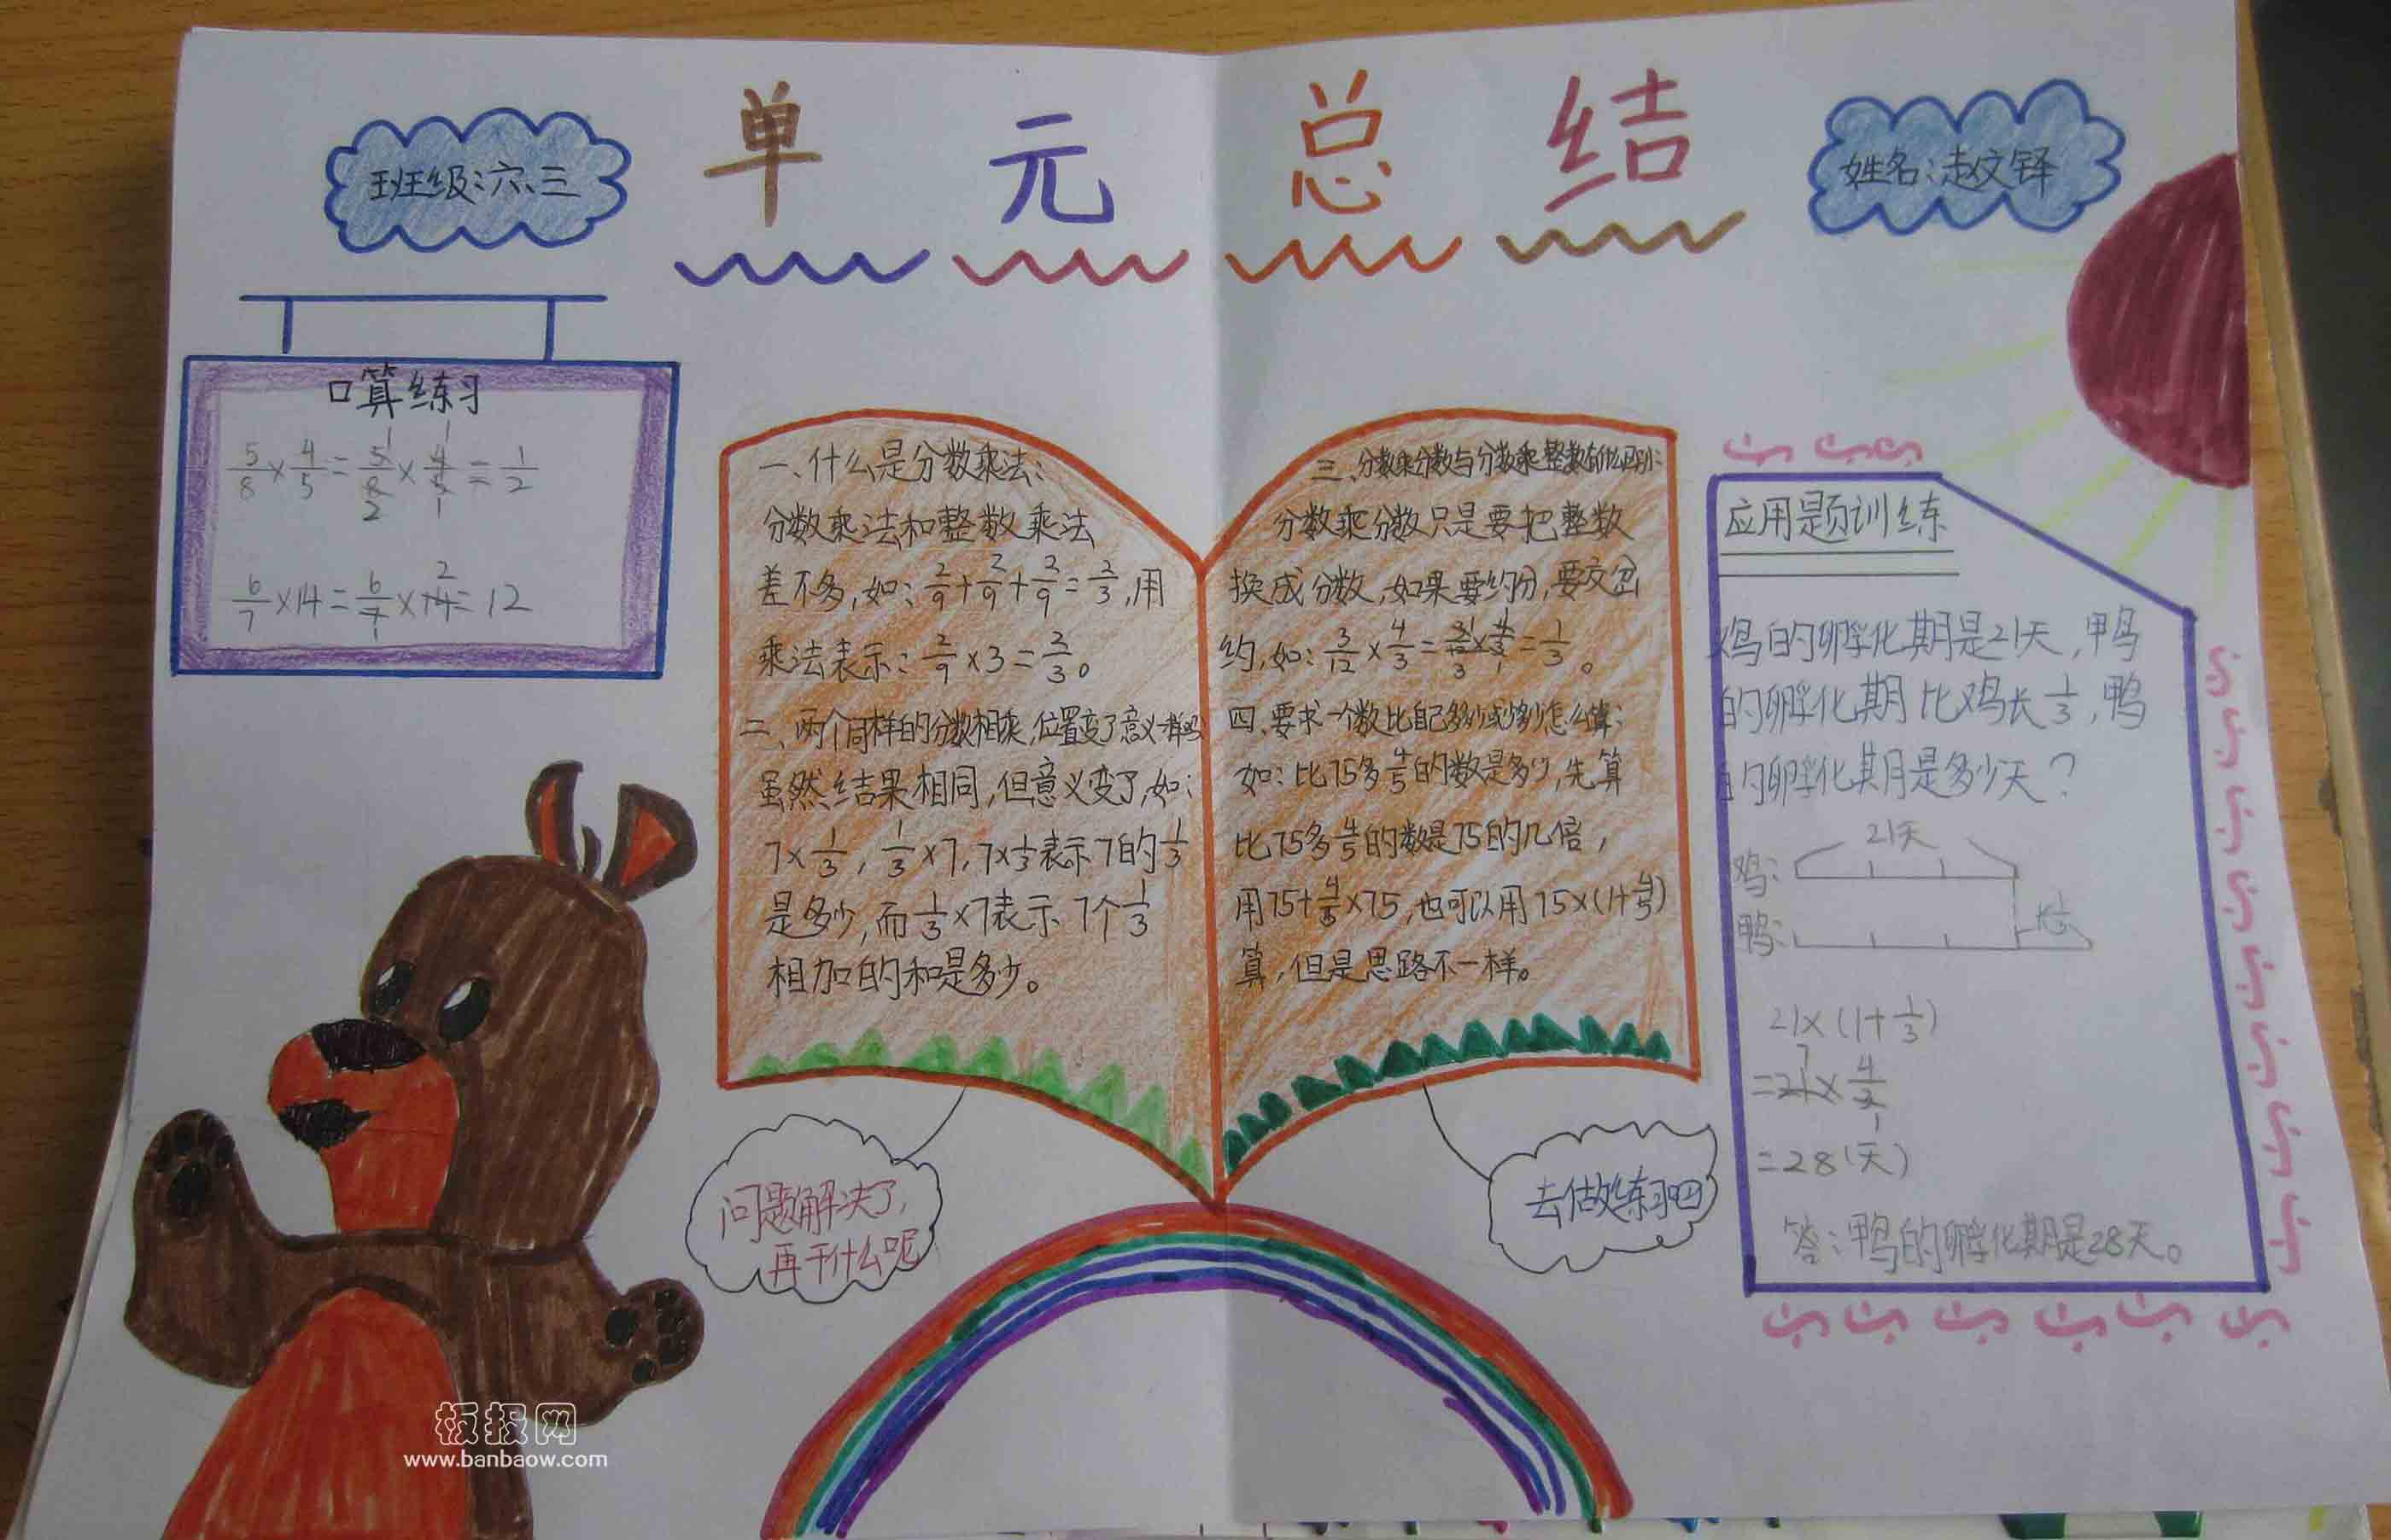 单元总结
班级:六、三
姓名:赵文铎
口算练习
5/8×4/5=5/8×4/5=1/2
6/7×14=6/7×14=12
一、什么是分数乘法:
分数乘法和整数乘法
差不多,如:2/9+2/9+2/9=2/3,用
乘法表示:2/9×3=2/3。
二、两个同样的分数相乘,位置变了意义一样吗
虽然结果相同,但意义变了,如:
7×1/3,1/3×7,7×1/3表示7的1/3
是多少,而1/3×7表示7个1/3
相加的和是多少。
三、分数乘分数与分数乘整数有什么区别:
分数乘分数只是要把整数
换成分数,如果要约分,要交叉
约,如:3/12×4/3=3/12×4/3=1/3。
四、要求一个数比自己多
怎么算:
如:比75多4/5的数是多少,先算
比75多4/5的数是75的几倍,
用75+4/5×75,也可以用75×(1+4/5)
算,但是思路不一样。
应用题训练
鸡的孵化期是21天,鸭
的孵化期比鸡长1/3,鸭
的孵化期是多少天?
21天
鸡:
鸭:
长1/3
21×(1+1/3)
=21×4/3
=28(天)
答:鸭的孵化期是28天。
问题解决了,
再干什么呢
去做练习吧
板报网
www.banbaow.com